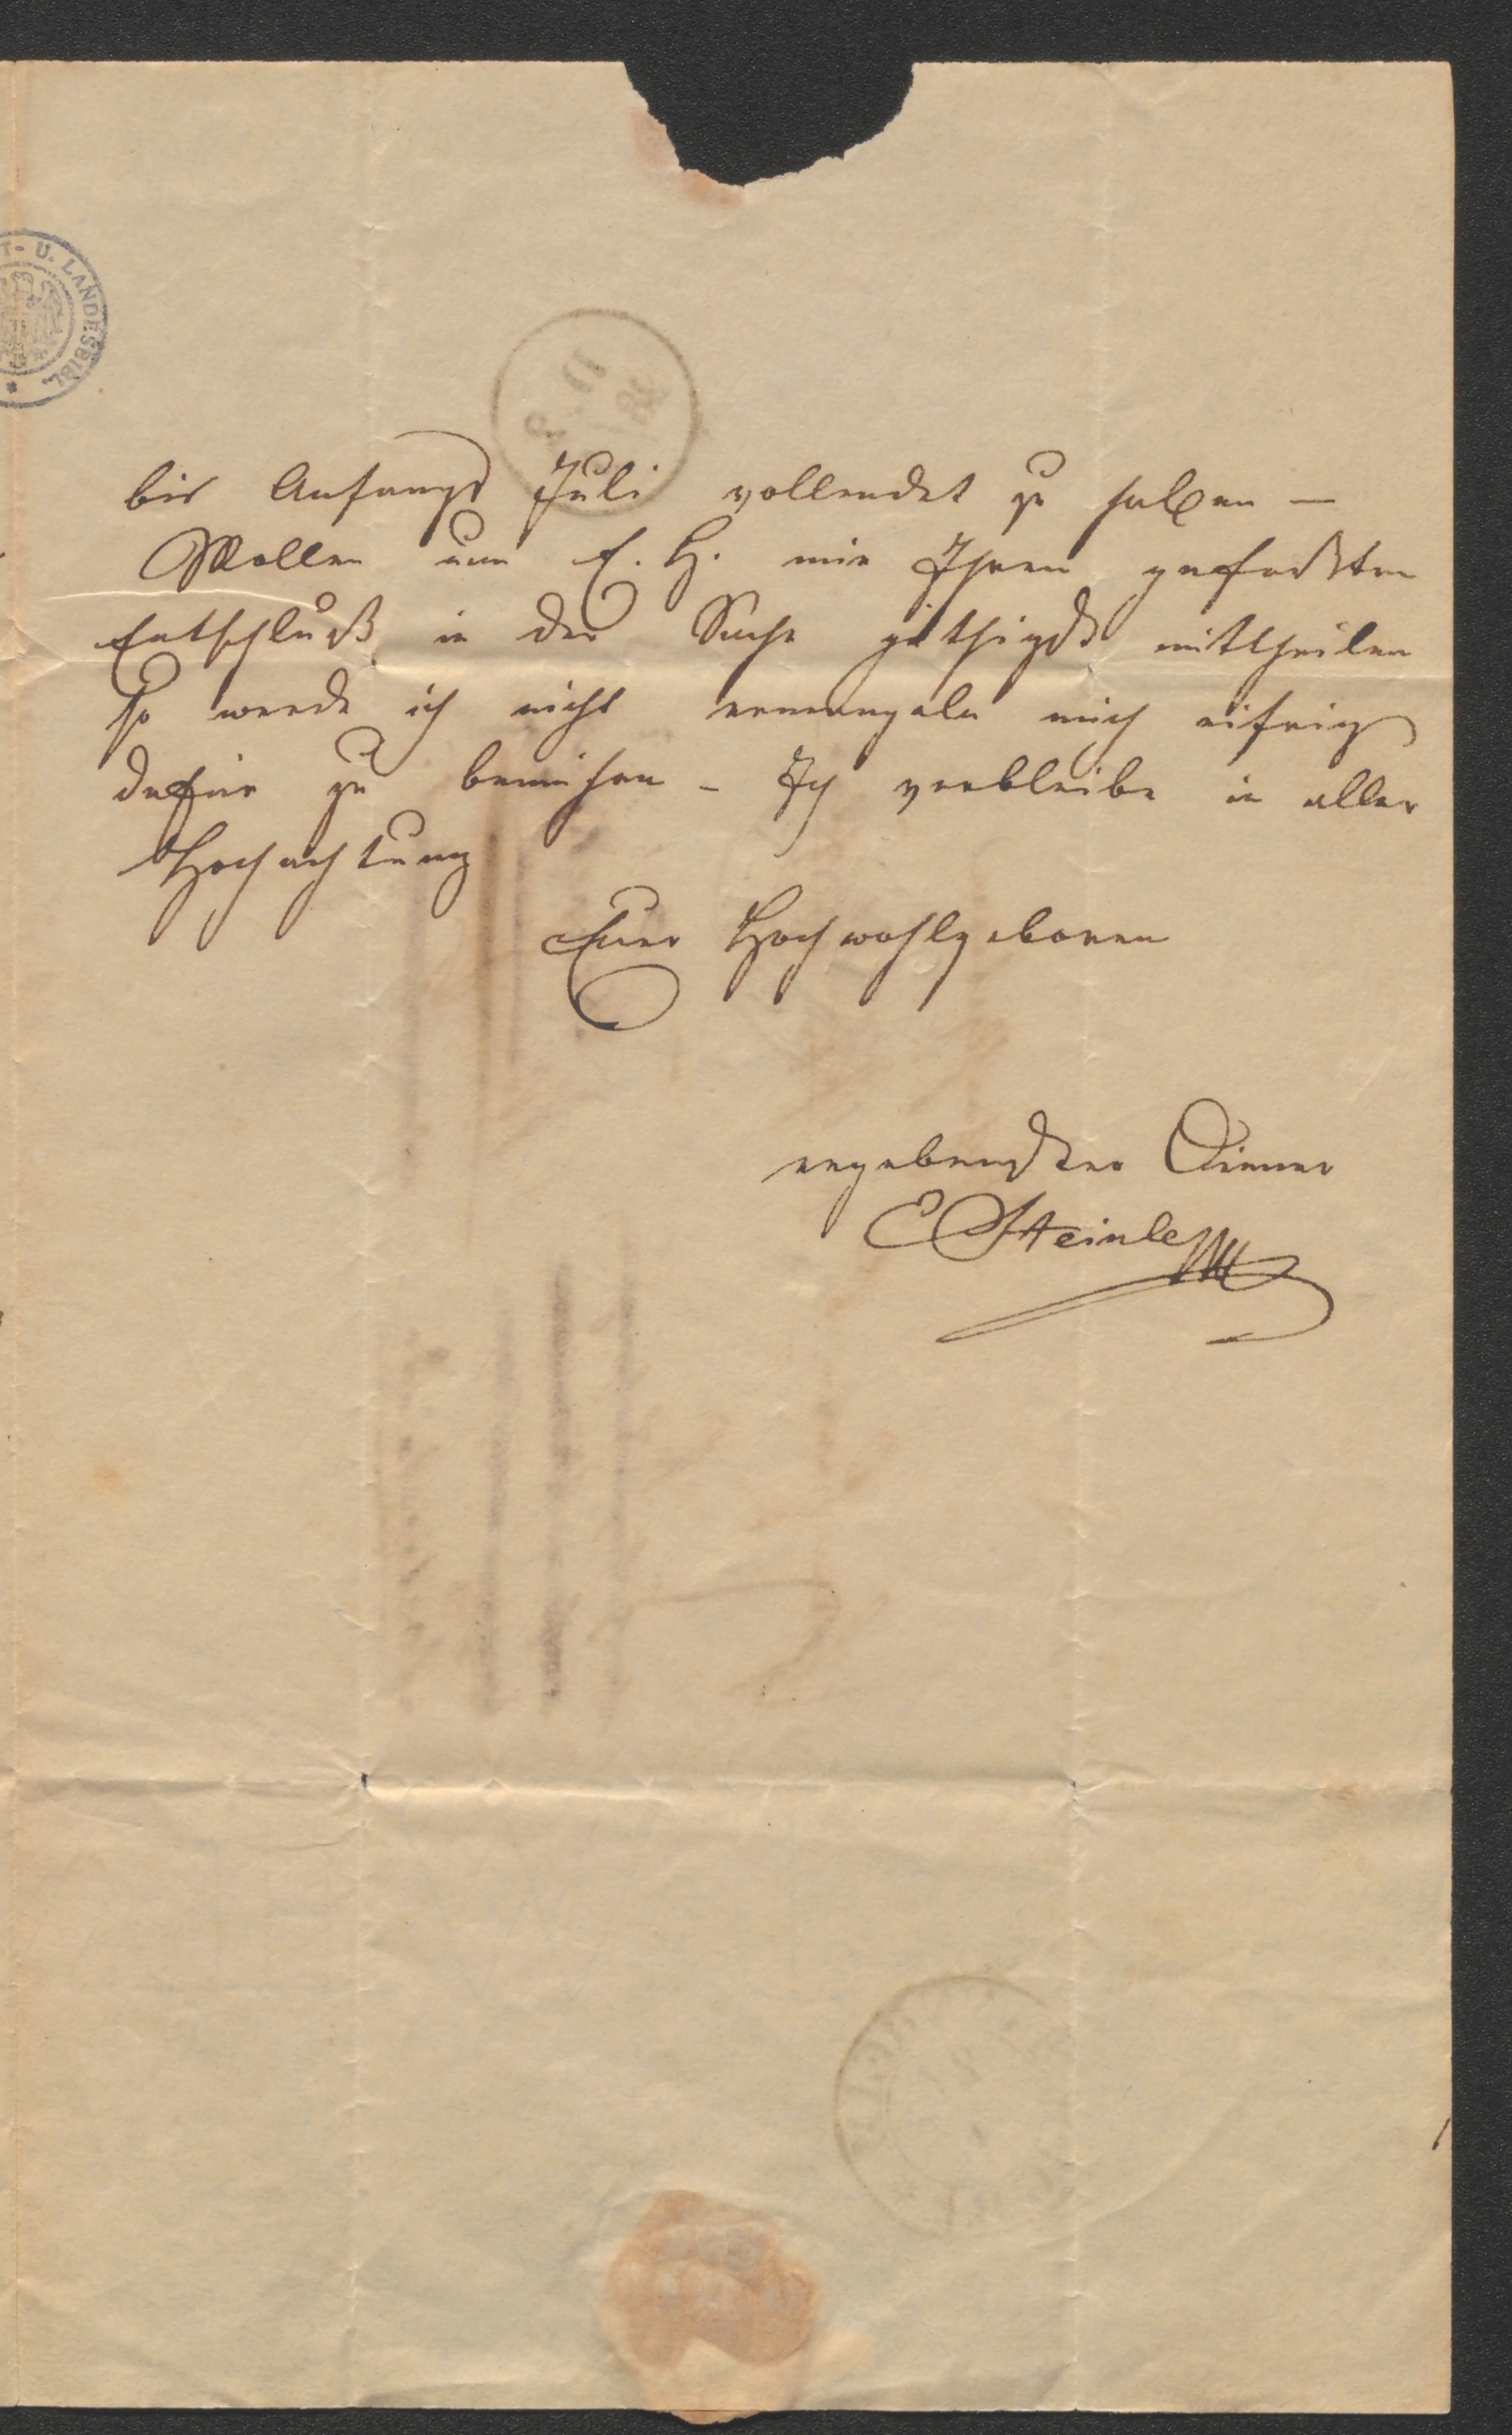 T- U. LANDESBIBL.
bis Anfangs Juli vollendet zu haben —
Wollen nun E. H. mir Ihren gefaßten
Entschluß in der Sache güthigst mittheilen
so werde ich nicht ermangeln mich eifrig
dafür zu bemühen – Ich verbleibe in aller
Hochachtung
Euer Hochwohlgeboren
ergebenster Diener
E Steinle